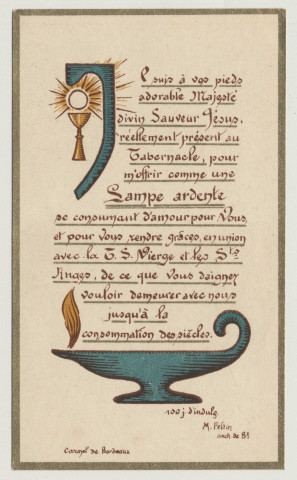 Je suis à vos pieds
adorable Majesté
divin Sauveur Jésus,
réellement présent au
Tabernacle, pour
m'offrir comme une
Lampe ardente
se consumant d'amour pour Vous,
et pour Vous rendre grâces, en union
avec la T. S. Vierge et les Sts
Anges, de ce que Vous daignez
vouloir demeurer avec nous
jusqu'à la
consommation des siècles.
100 j. d'indulg.
M. Feltin
arch. de Bx
Carmel de Bordeaux